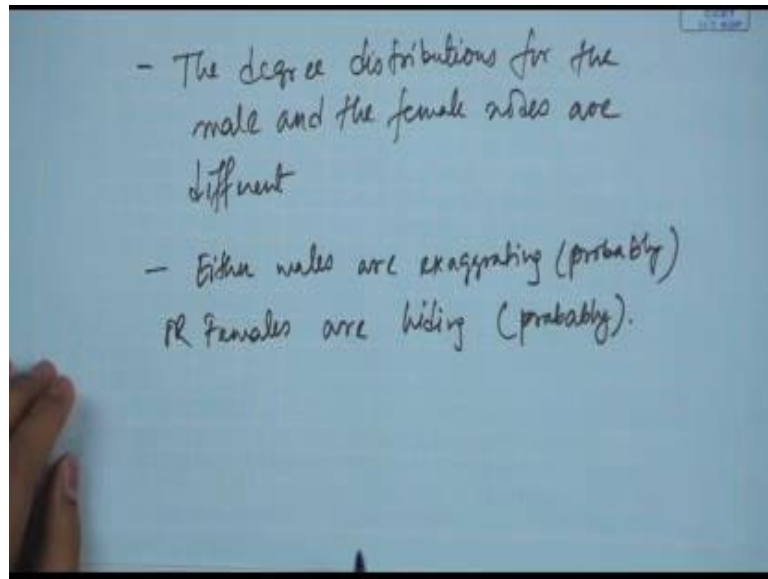 - The degree distributions for the
male and the female nodes are
diffrent
- Either males are exaggrating (probably)
OR Females are hiding (probably).